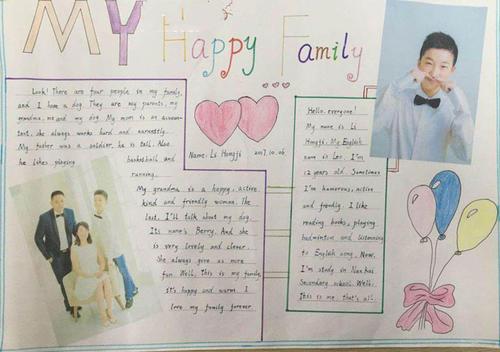 MY Happy Family
Look! There are four people in my family,
and I have a dog. They are my parents, my
grandma, me and my dog. My mom is an accoun-
tant, she always works hard and earnestly.
My father was a soldier, he is tall. Also
he likes playing basketball and
running.
My grandma is a happy, active,
kind and friendly woman. The
last, I'll talk about my dog.
Its name's Berry. And she
is very lovely and clever.
She always give us more
fun. Well, this is my family,
it's happy and warm. I
love my family forever.
Name: Li Hongji 2017.10.06
Hello, everyone!
My name is Li
Hongji. My English
name is Leo. I'm
12 years old. Sometimes
I'm humorous, active
and friendly. I like
reading books, playing
badminton and listenning
to English song. Now,
I'm study in Nanhai
Secondary school. Well,
This is me, that's all.